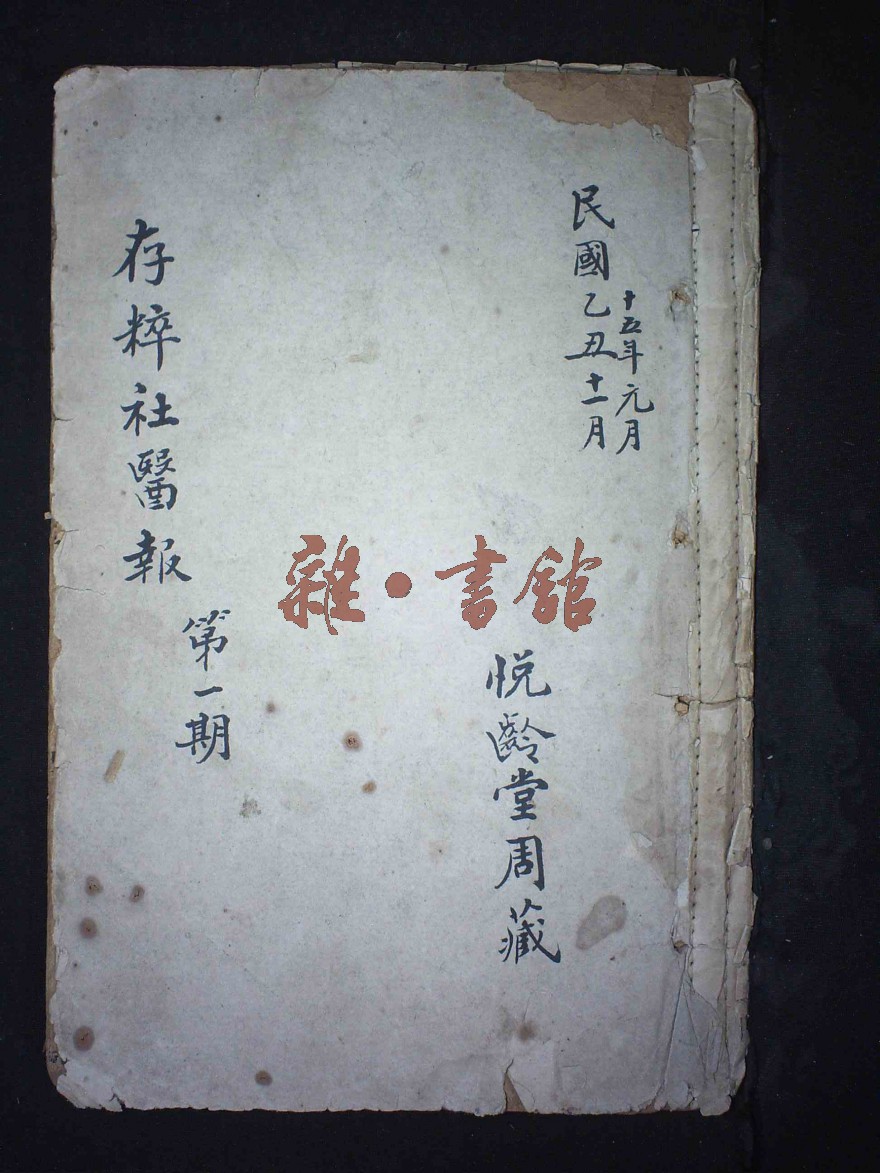 民國乙丑十一月
十五年元月
存粹社醫報
第一期
悦齡堂周藏
雜·書館